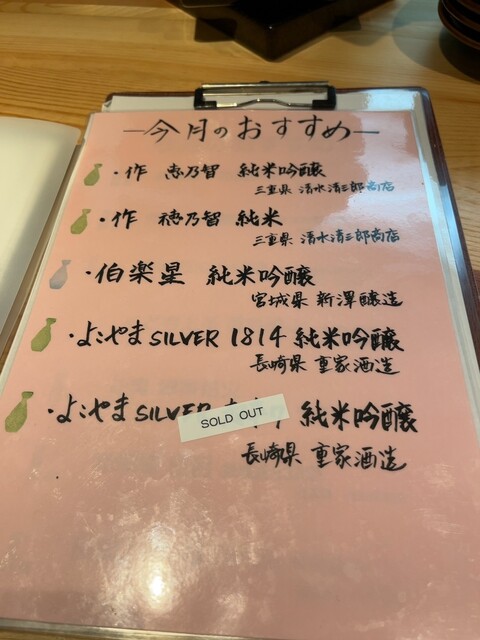 今月のおすすめ
・作 恵乃智 純米吟醸
三重県 清水清三郎商店
・作 穂乃智 純米
三重県 清水清三郎商店
・伯楽星 純米吟醸
宮城県 新澤醸造
・よこやまSILVER 1814 純米吟醸
長崎県 重家酒造
・よこやまSILVER 純米吟醸
SOLD OUT
長崎県 重家酒造